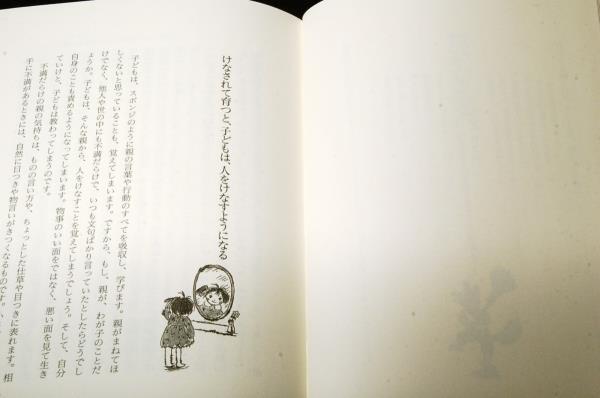 けなされて育つと、子どもは、人をけなすようになる
子どもは、スポンジのように親の言葉や行動のすべてを吸収し、学びます。親がまねてほ
しくないと思っていることも、覚えてしまいます。ですから、もし、親が、わが子のことだ
けでなく、他人や世の中にも不満だらけで、いつも文句ばかり言っていたとしたらどうでし
ょうか。子どもは、そんな親から、人をけなすことを覚えてしまうでしょう。そして、自分
自身のことも責めるようになってしまいます。物事のいい面をではなく、悪い面を見て生き
ていけと、子どもは教わってしまうのです。
不満だらけの親の気持ちは、ものの言い方や、ちょっとした仕草や目つきに表れます。相
手に不満があるときには、自然に目つきや物言いがきつくなるものです。